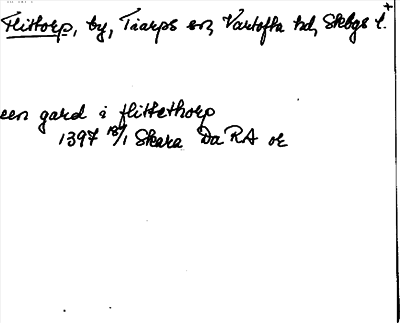 Flittorp, by, Tiarps sn, Vartofta hd, Skbgs l.
een gard i flittethorp
1397 13/1 Skara Da RA or